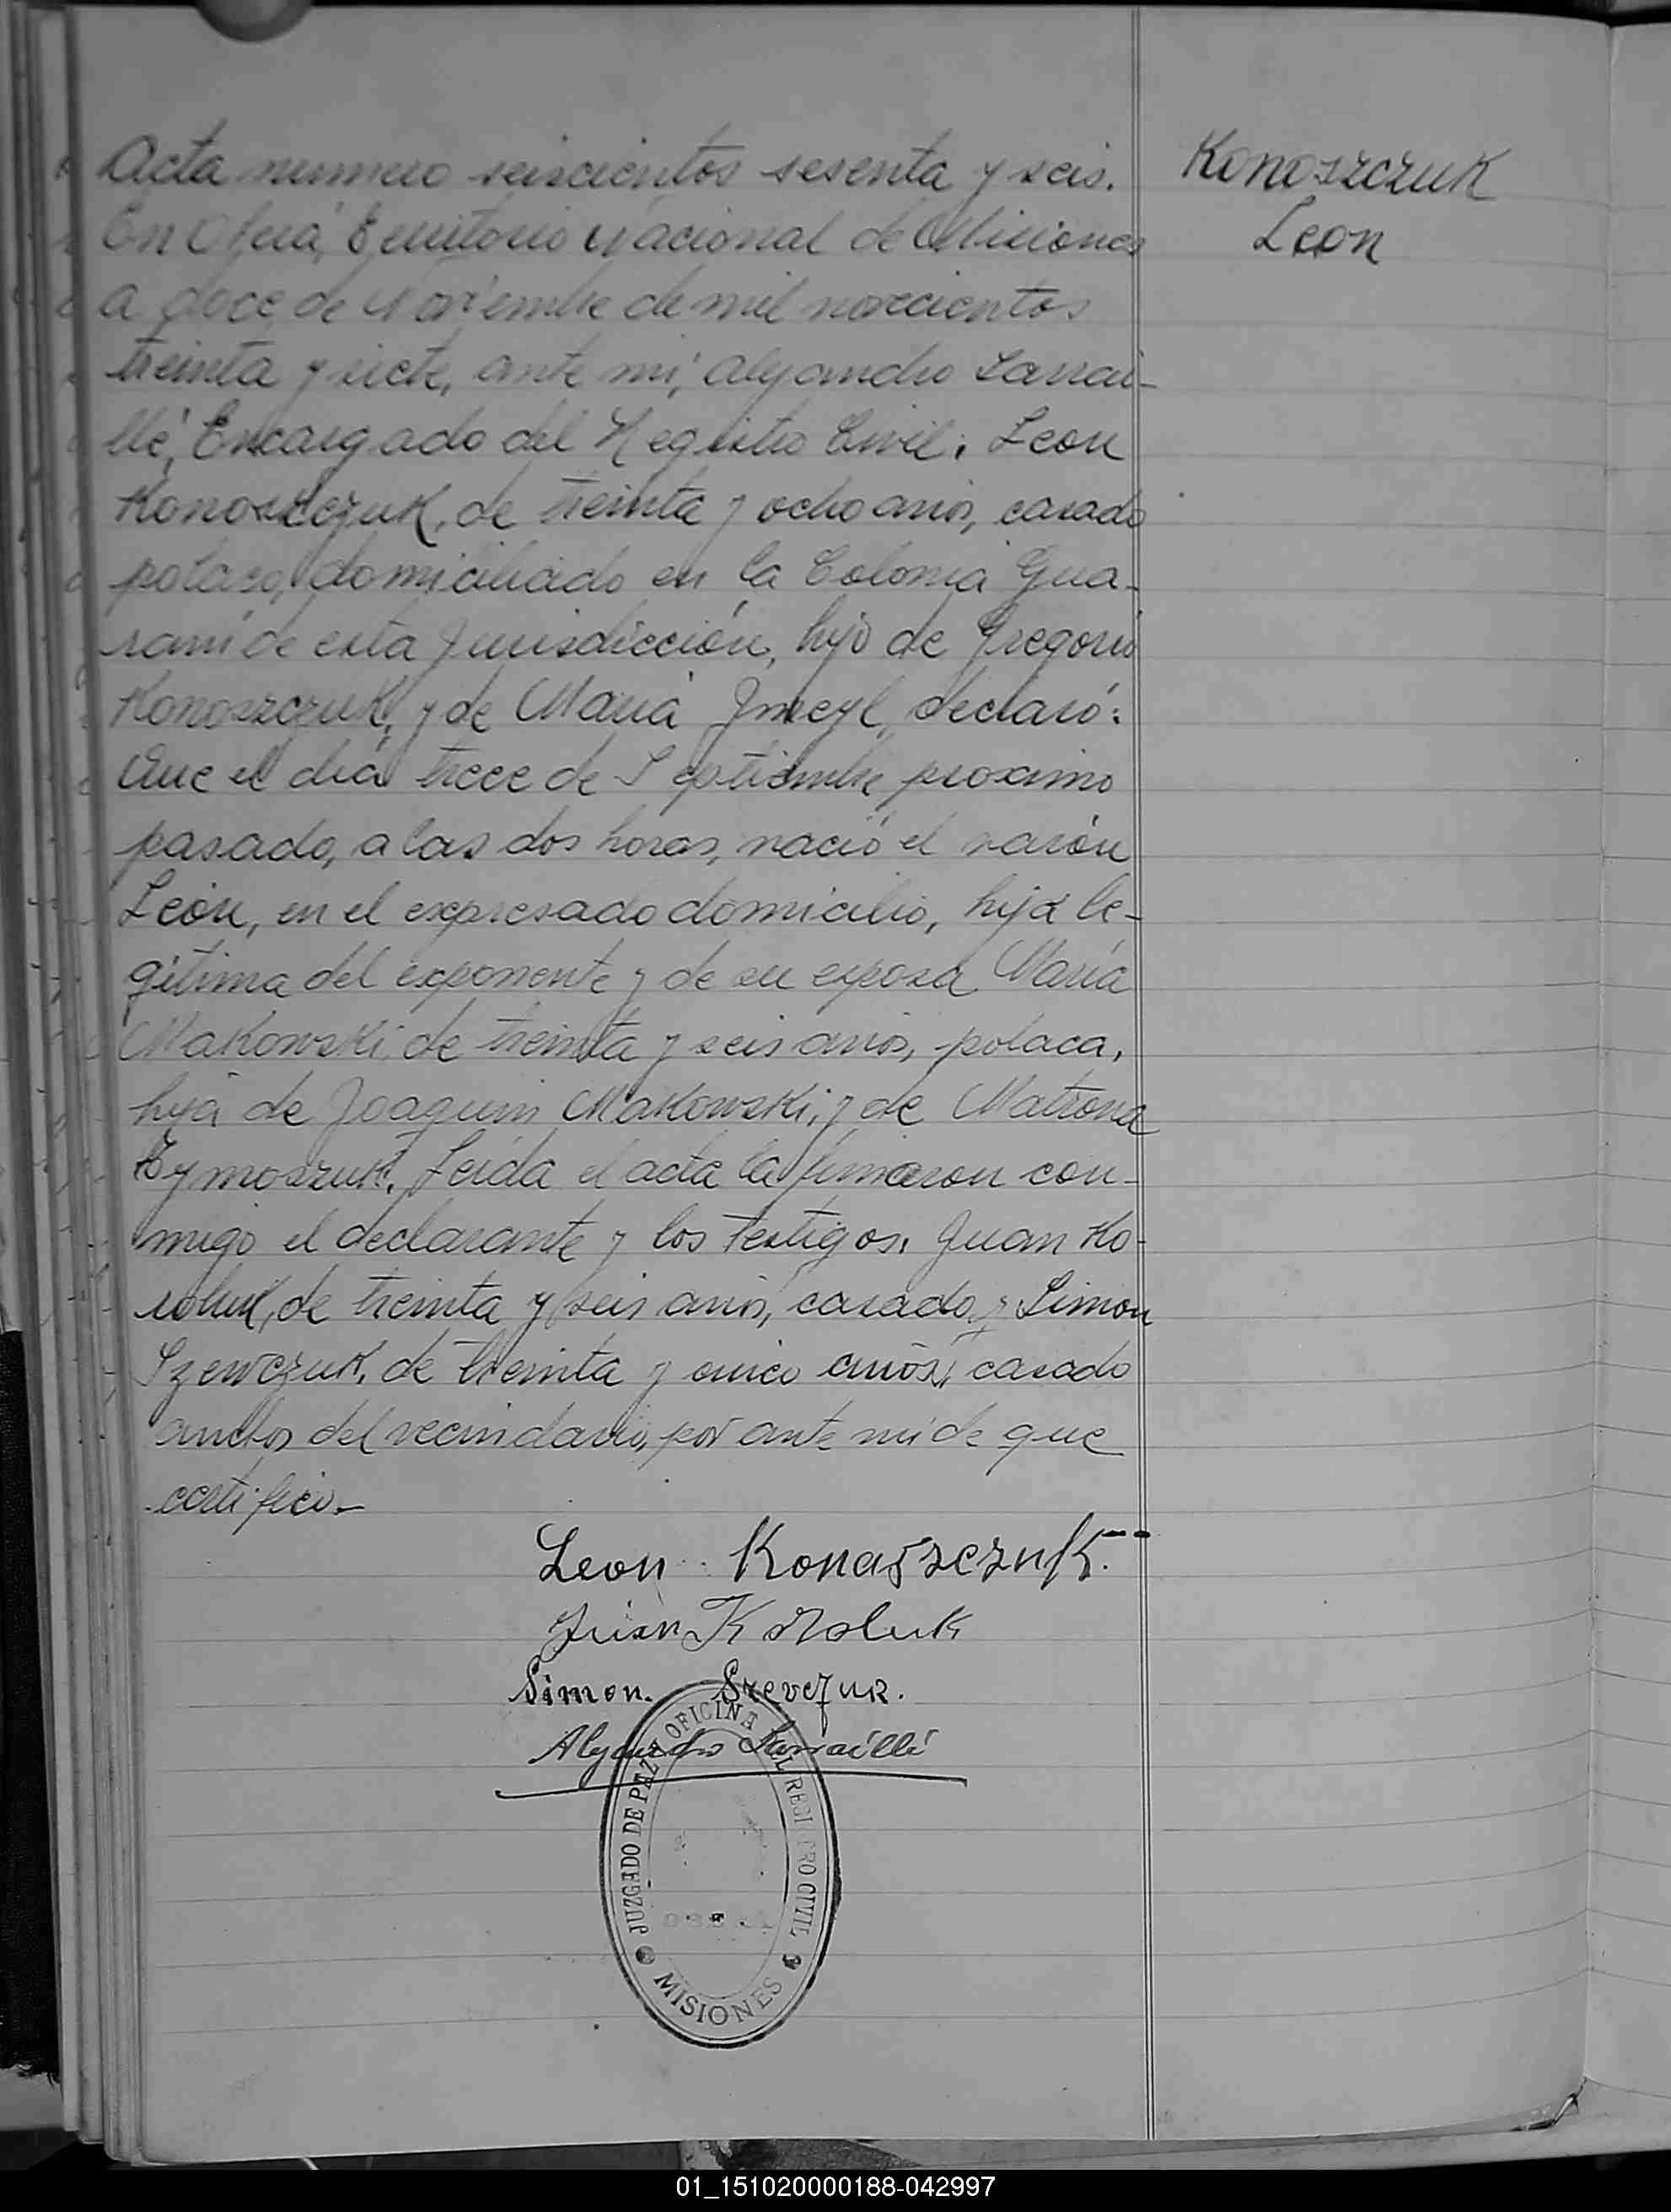 Acta numero seiscientos sesenta y seis.
En Oberá, Territorio Nacional de Misiones
a doce de Noviembre de mil novecientos
treinta y siete, ante mi, Alejandro Larrai-
llé, Encargado del Registro Civil; Leon
Konoszczuk, de treinta y ocho años, casado
polaco, domiciliado en la Colonia Gua-
raní de esta Jurisdicción, hijo de Gregorio
Konoszczuk, y de Maria declaró:
Que el día trece de Septiembre proximo
pasado, a las dos horas, nació el varón
León, en el expresado domicilio, hija le-
gítima del exponente y de su esposa María
Makowski, de treinta y seis años, polaca,
hija de Joaquin Makowski, y de Matrona
Tymoszuk. Leída el acta la firmaron con-
migo el declarante y los testigos, Juan Ko-
roluk, de treinta y seis años, casado y Simon
Szewczuk, de treinta y cinco años, casado
ambos del vecindario, por ante mi de que
certifico.-
Konoszczuk
Leon
Leon Konaszczuk.
Juan Koroluk
Simon. Szevczuk.
Alejandro Larraillé
JUZGADO DE PAZ Y OFICINA DEL REGISTRO CIVIL
MISIONES
01_151020000188-042997